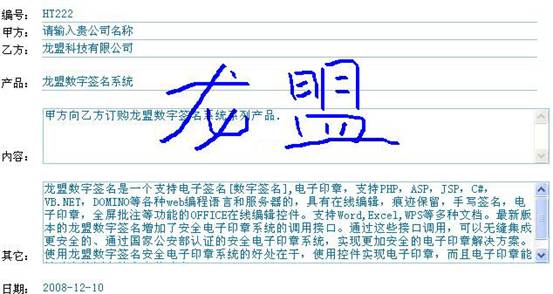 编号: HT222
甲方: 请输入贵公司名称
乙方: 龙盟科技有限公司
龙盟
产品: 龙盟数字签名系统
甲方向乙方订购龙盟数字签名系统系列产品.
内容:
龙盟数字签名是一个支持电子签名[数字签名],电子印章, 支持PHP, ASP, JSP, C#,
VB.NET, DOMINO等各种web编程语言和服务器的, 具有在线编辑, 痕迹保留, 手写签名, 电
子印章, 全屏批注等功能的OFFICE在线编辑控件。支持Word,Excel,WPS等多种文档。最新版
本的龙盟数字签名增加了安全电子印章系统的调用接口。通过这些接口调用, 可以无缝集成
更安全的、通过国家公安部认证的安全电子印章系统, 实现更加安全的电子印章解决方案。
其它: 使用龙盟数字签名安全电子印章系统的好处在于, 使用控件实现电子印章, 而且电子印章能
日期: 2008-12-10